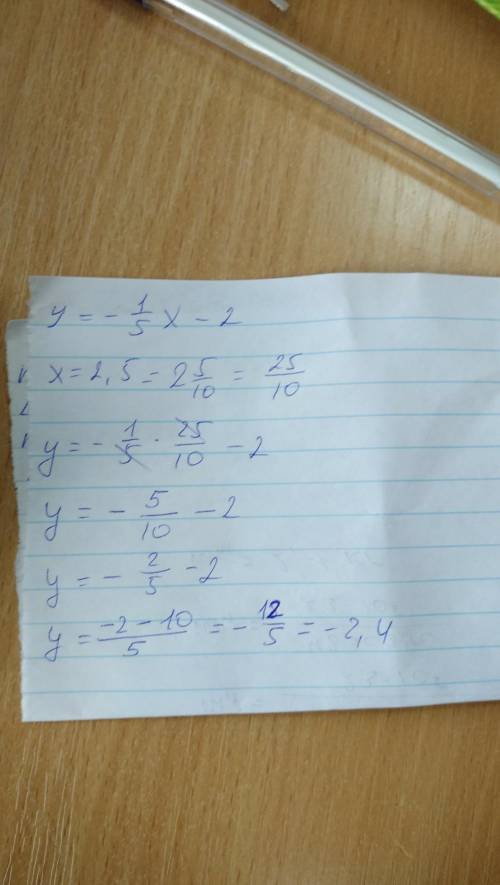 y = - 1/5 x - 2
x = 2,5 = 2 5/10 = 25/10
y = - 1/5 · 25/10 - 2
y = - 5/10 - 2
y = - 2/5 - 2
y = (-2 - 10)/5 = - 12/5 = - 2,4